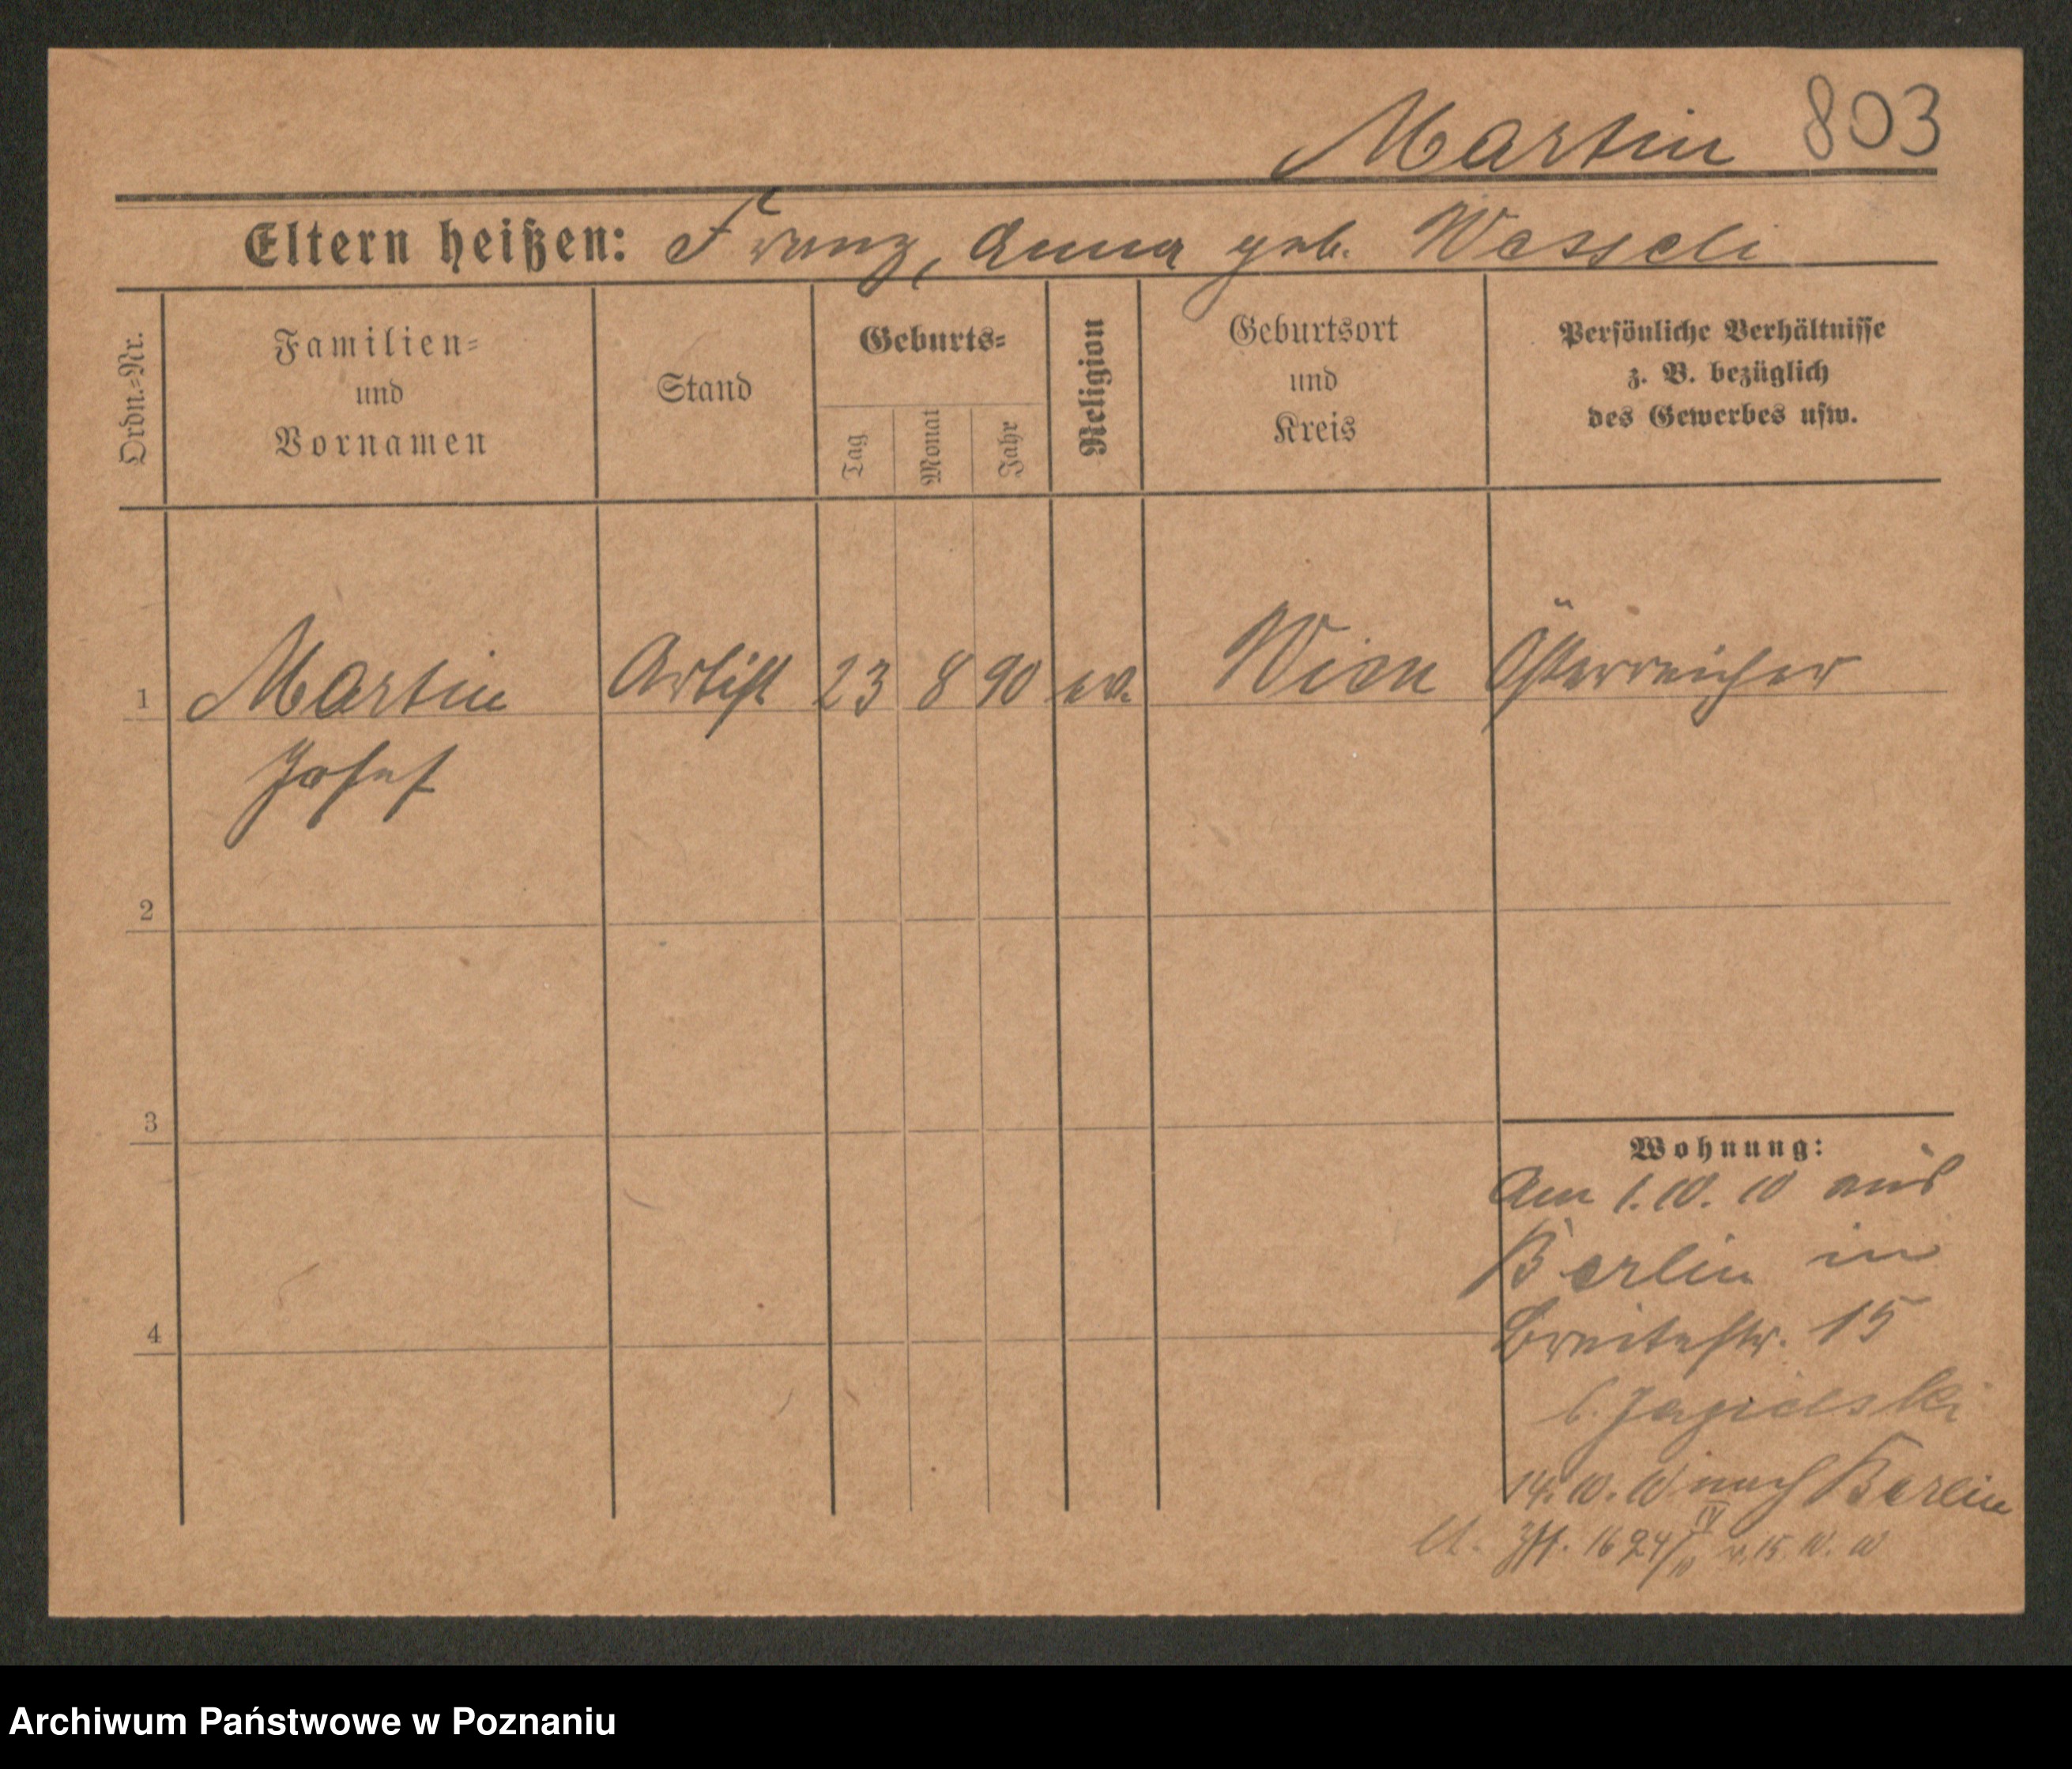 Martin 803
Eltern heißen: Franz, Anna geb. Wesseli
Ordn.=Nr.
Familien=
und
Vornamen
Stand
Geburts=
Tag
Monat
Jahr
Religion
Geburtsort
und
Kreis
Persönliche Verhältnisse
z. B. bezüglich
des Gewerbes usw.
1 Martin Artist 23 8 90 ev. Wien Österreicher
Josef
2
3
4
Wohnung:
Am 1. 10. 10 aus
Berlin in
Breitestr. 15
b. Jagielski
14. 10. 10 nach Berlin
1694/10 IV v. 15. 10. 10
Archiwum Państwowe w Poznaniu